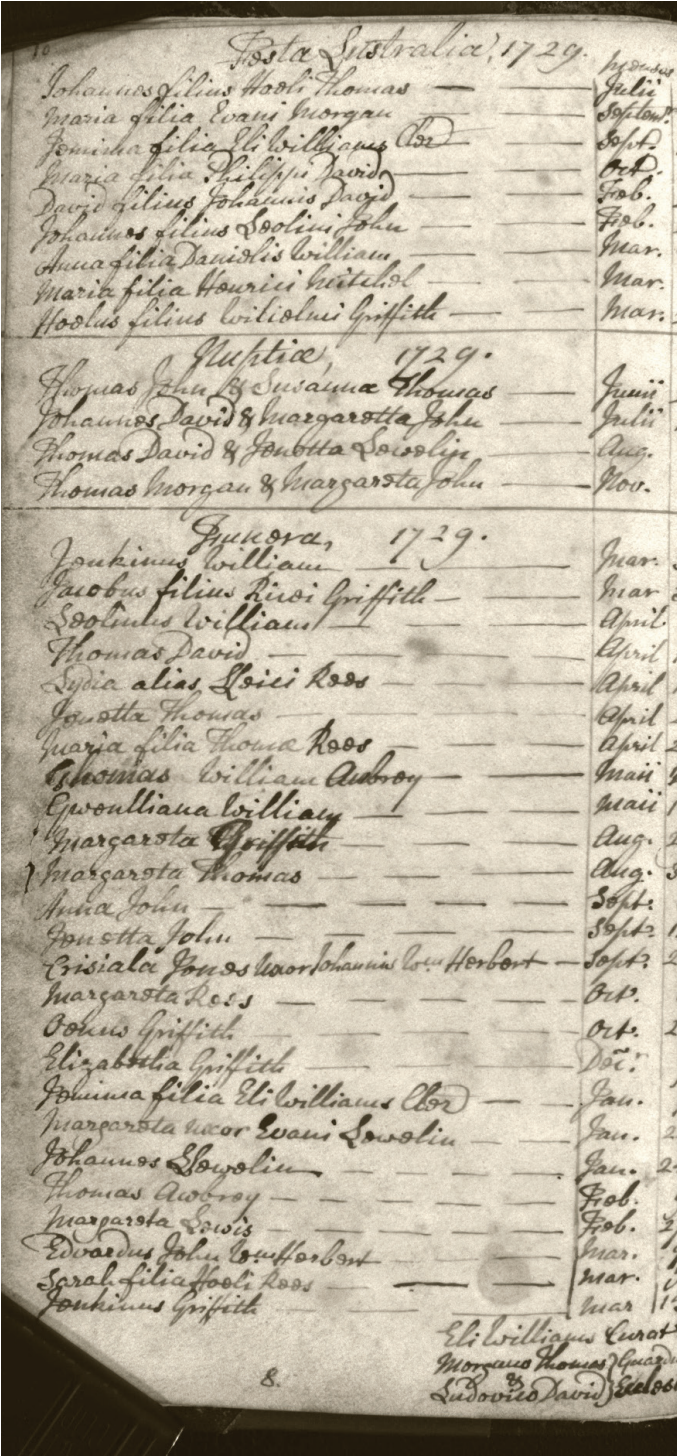 10
Festa Lustralia, 1729. mensis
Johannes filius Hoeli Thomas Julii
Maria filia Evani Morgan Septem.
Jemima filia Eli Williams Cler Sept.
Maria filia Philippi David Oct.
David filius Johannis David Feb.
Johannes filius Leolini John Feb.
Anna filia Danielis William Mar.
Maria filia Henrici Mitchel Mar.
Hoelus filius Wilielmi Griffith Mar.
Nuptiæ, 1729.
Thomas John & Susanna Thomas Junii
Johannes David & Margaretta John Julii
Thomas David & Jenetta Lewelin Aug.
Thomas Morgan & Margareta John Nov.
Funera, 1729.
Jenkinus William Mar.
Jacobus filius Ricei Griffith Mar
Leolinus William April
Thomas David April
Lydia alias Lleici Rees April
Jenetta Thomas April
Maria filia Thomæ Rees April 2
Thomas William Aubrey Maii
Gwenlliana William Maii 1
Margareta Griffith Aug. 2
Margareta Thomas Aug.
Anna John Sept.
Jenetta John Sept. 1
Crisiala Jones uxor Johannis Wm Herbert Sept. 2
Margareta Rees Oct.
Oenus Griffith Oct. 2
Elizabetha Griffith Dec.r
Jemima filia Eli Williams Cler Jan.
Margareta uxor Evani Lewelin Jan. 2
Johannes Llewelin Jan. 2
Thomas Awbrey Feb.
Margareta Lewis Feb. 2
Edvardus John Wm Herbert Mar.
Sarah filia Hoeli Rees Mar.
Jenkinus Griffith Mar 1
Eli Williams Curat
Morgano Thomas
&
Ludovico David
8.